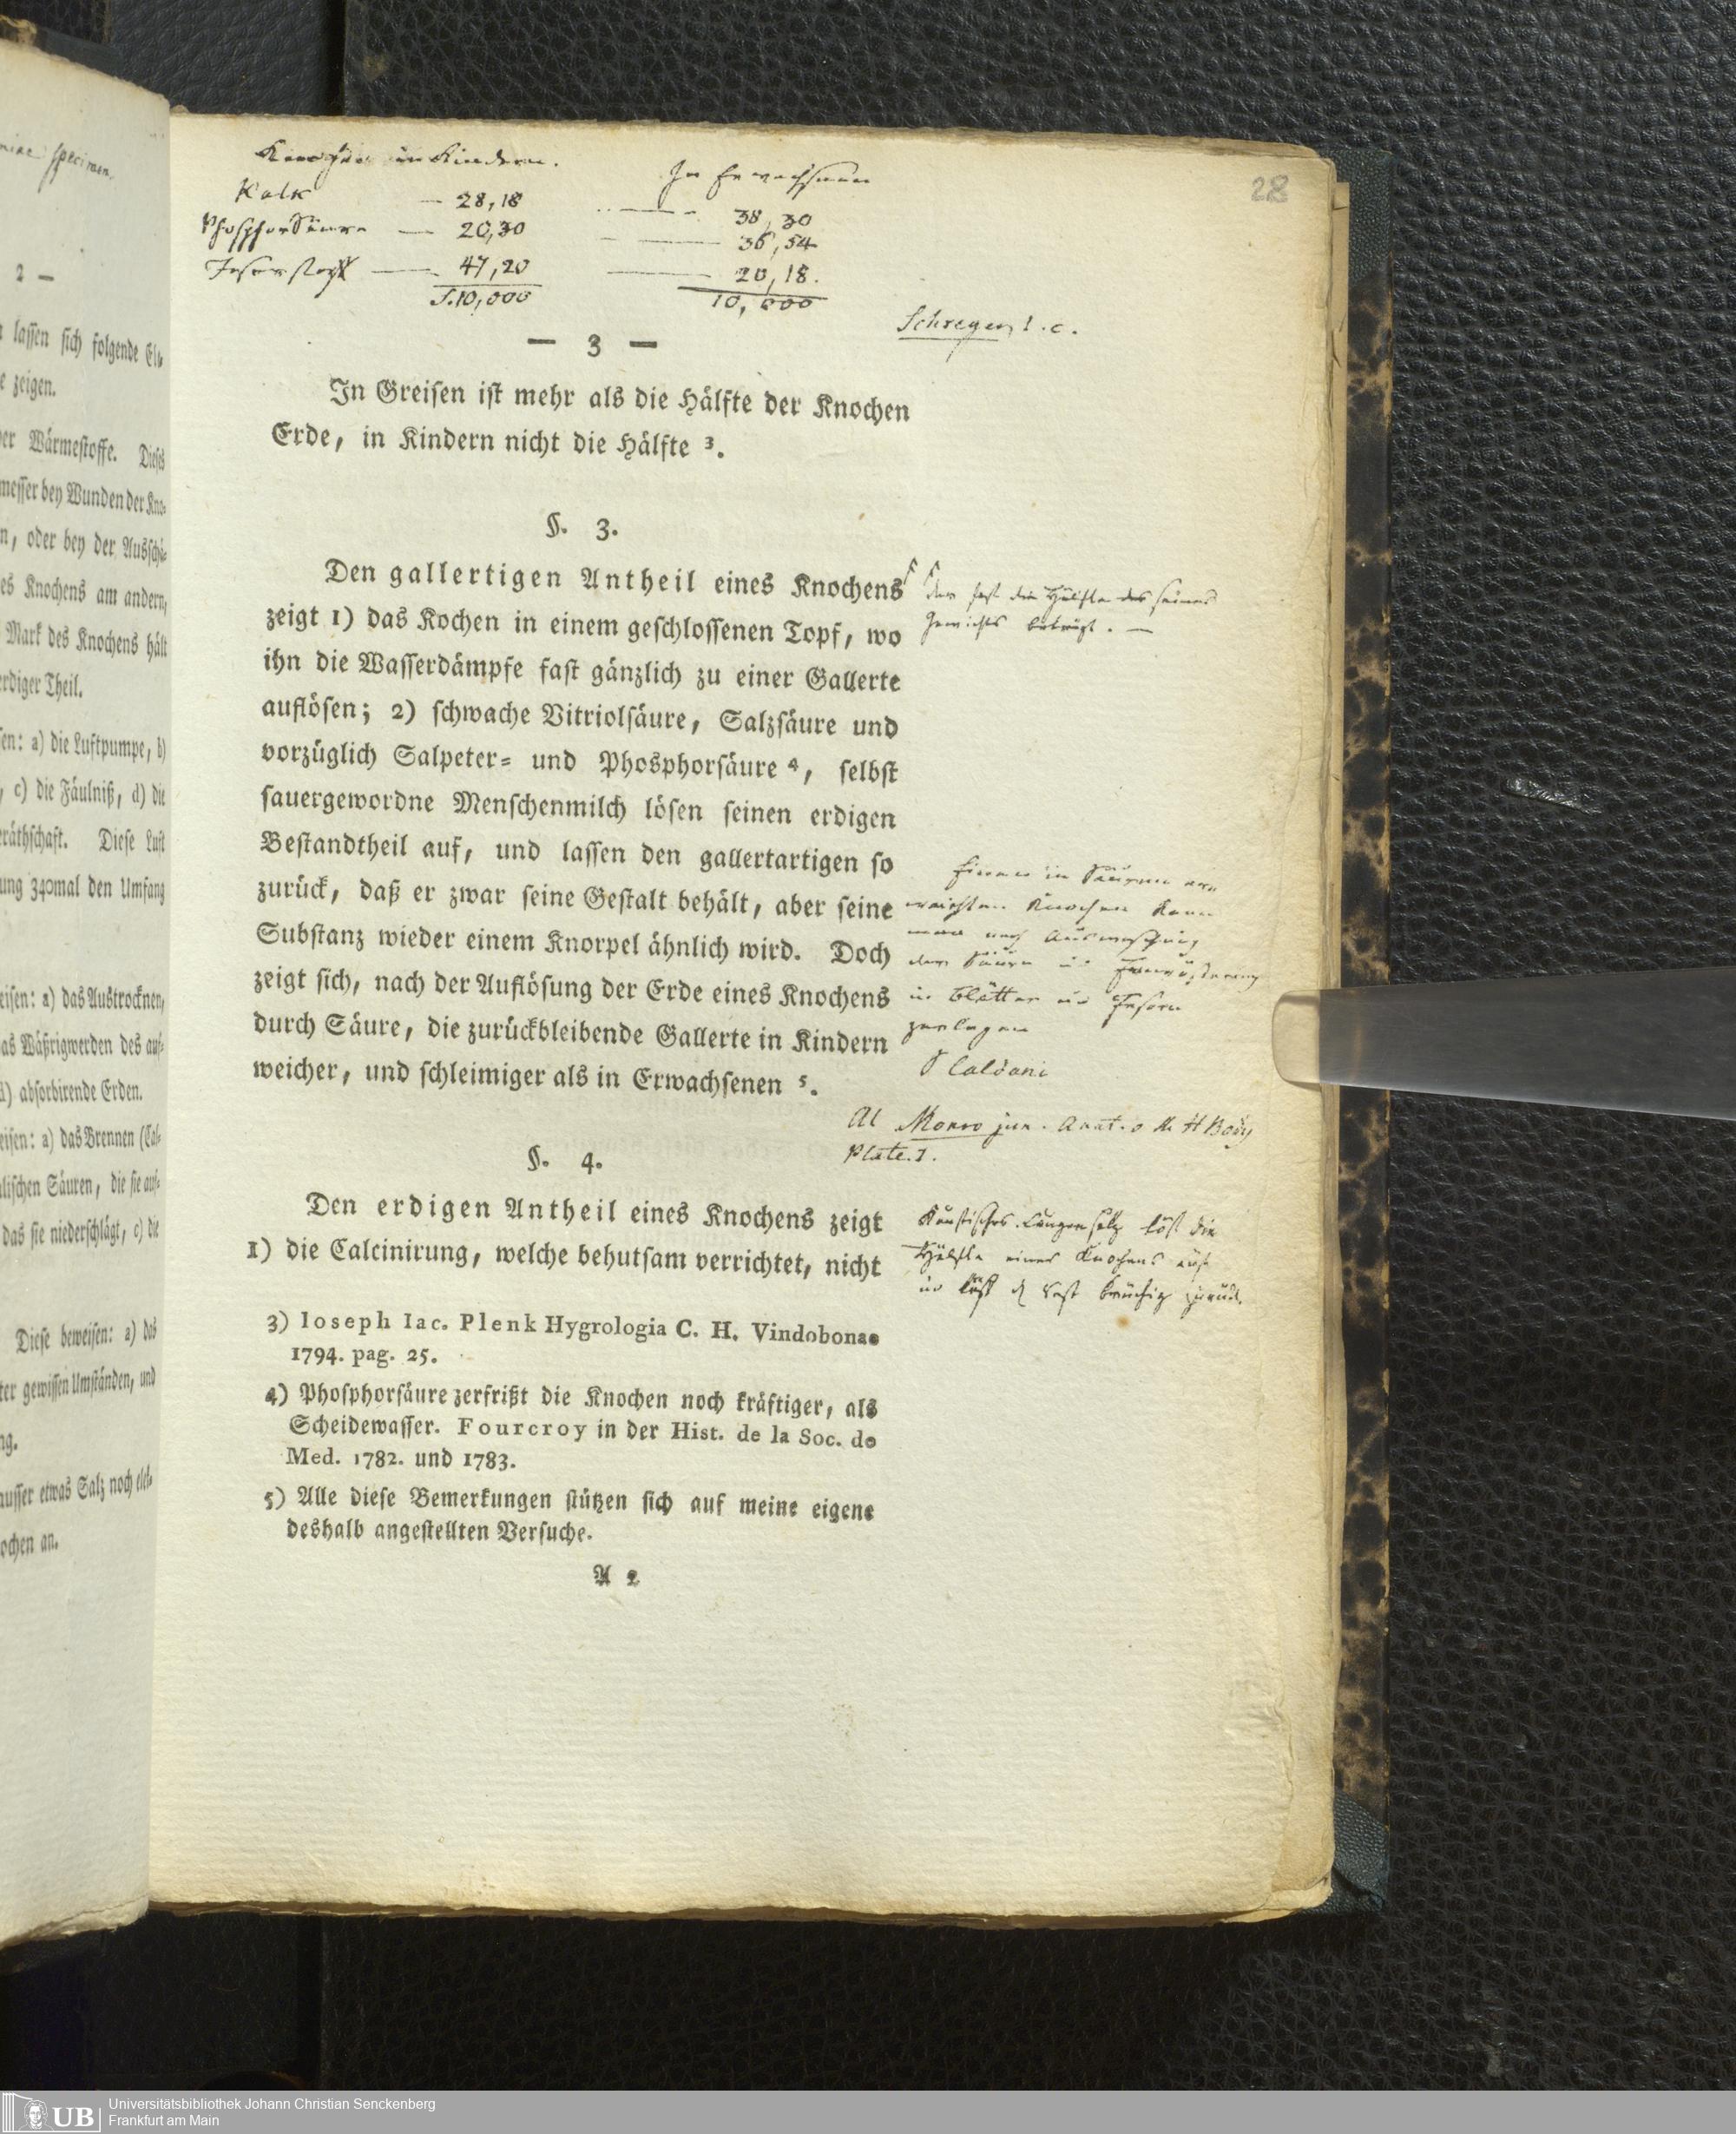 miae specimen
2 —
lassen sich folgende Ele-
zeigen.
der Wärmestoffe. Dieses
messer bey Wunden der Kno-
n, oder bey der Ausschä-
es Knochens am andern,
Mark des Knochens hält
erdiger Theil.
sen: a) die Luftpumpe, b)
, c) die Fäulniß, d) die
eräthschaft. Diese Luft
ung 340mal den Umfang
eisen: a) das Austrocknen,
as Wäßrigwerden des auf-
d) absorbirende Erden.
eisen: a) das Brennen (Cal-
alischen Säuren, die sie auf-
das sie niederschlägt, c) die
Diese beweisen: a) das
ter gewissen Umständen, und
ng.
ausser etwas Salz noch elek-
ochen an.
28
in Kindern. In Erwachsenen
Kalk — 28,18 — 38,30
PhosphorSäure — 20,30 — 36,54
Faserstoff — 47,20 — 20,18.
S.10,000 10,000
Schreger, l. c.
— 3 —
In Greisen ist mehr als die Hälfte der Knochen
Erde, in Kindern nicht die Hälfte 3.
§. 3.
Den gallertigen Antheil eines Knochens
zeigt 1) das Kochen in einem geschlossenen Topf, wo
ihn die Wasserdämpfe fast gänzlich zu einer Gallerte
auflösen; 2) schwache Vitriolsäure, Salzsäure und
vorzüglich Salpeter- und Phosphorsäure 4, selbst
sauergewordne Menschenmilch lösen seinen erdigen
Bestandtheil auf, und lassen den gallertartigen so
zurück, daß er zwar seine Gestalt behält, aber seine
Substanz wieder einem Knorpel ähnlich wird. Doch
zeigt sich, nach der Auflösung der Erde eines Knochens
durch Säure, die zurückbleibende Gallerte in Kindern
weicher, und schleimiger als in Erwachsenen 5.
der fast die Hälfte des seines
Gewichts beträgt. —
Einen in Säuren er
weichten Knochen kann
man nach Auswaschung
der Säure
in Blätter und Fasern
zerlegen
Caldani
Al Monro jun. Anat. o the H Body
Plate. 1.
§. 4.
Den erdigen Antheil eines Knochens zeigt
1) die Calcinirung, welche behutsam verrichtet, nicht
Kaustisches Laugensalz löst die
Hälfte eines Knochens auf
und läßt d Rest brüchig zurück.
3) Ioseph Iac. Plenk Hygrologia C. H. Vindobonae
1794. pag. 25.
4) Phosphorsäure zerfrißt die Knochen noch kräftiger, als
Scheidewasser. Fourcroy in der Hist. de la Soc. de
Med. 1782. und 1783.
5) Alle diese Bemerkungen stützen sich auf meine eigene
deshalb angestellten Versuche.
A 2
UB
Universitätsbibliothek Johann Christian Senckenberg
Frankfurt am Main